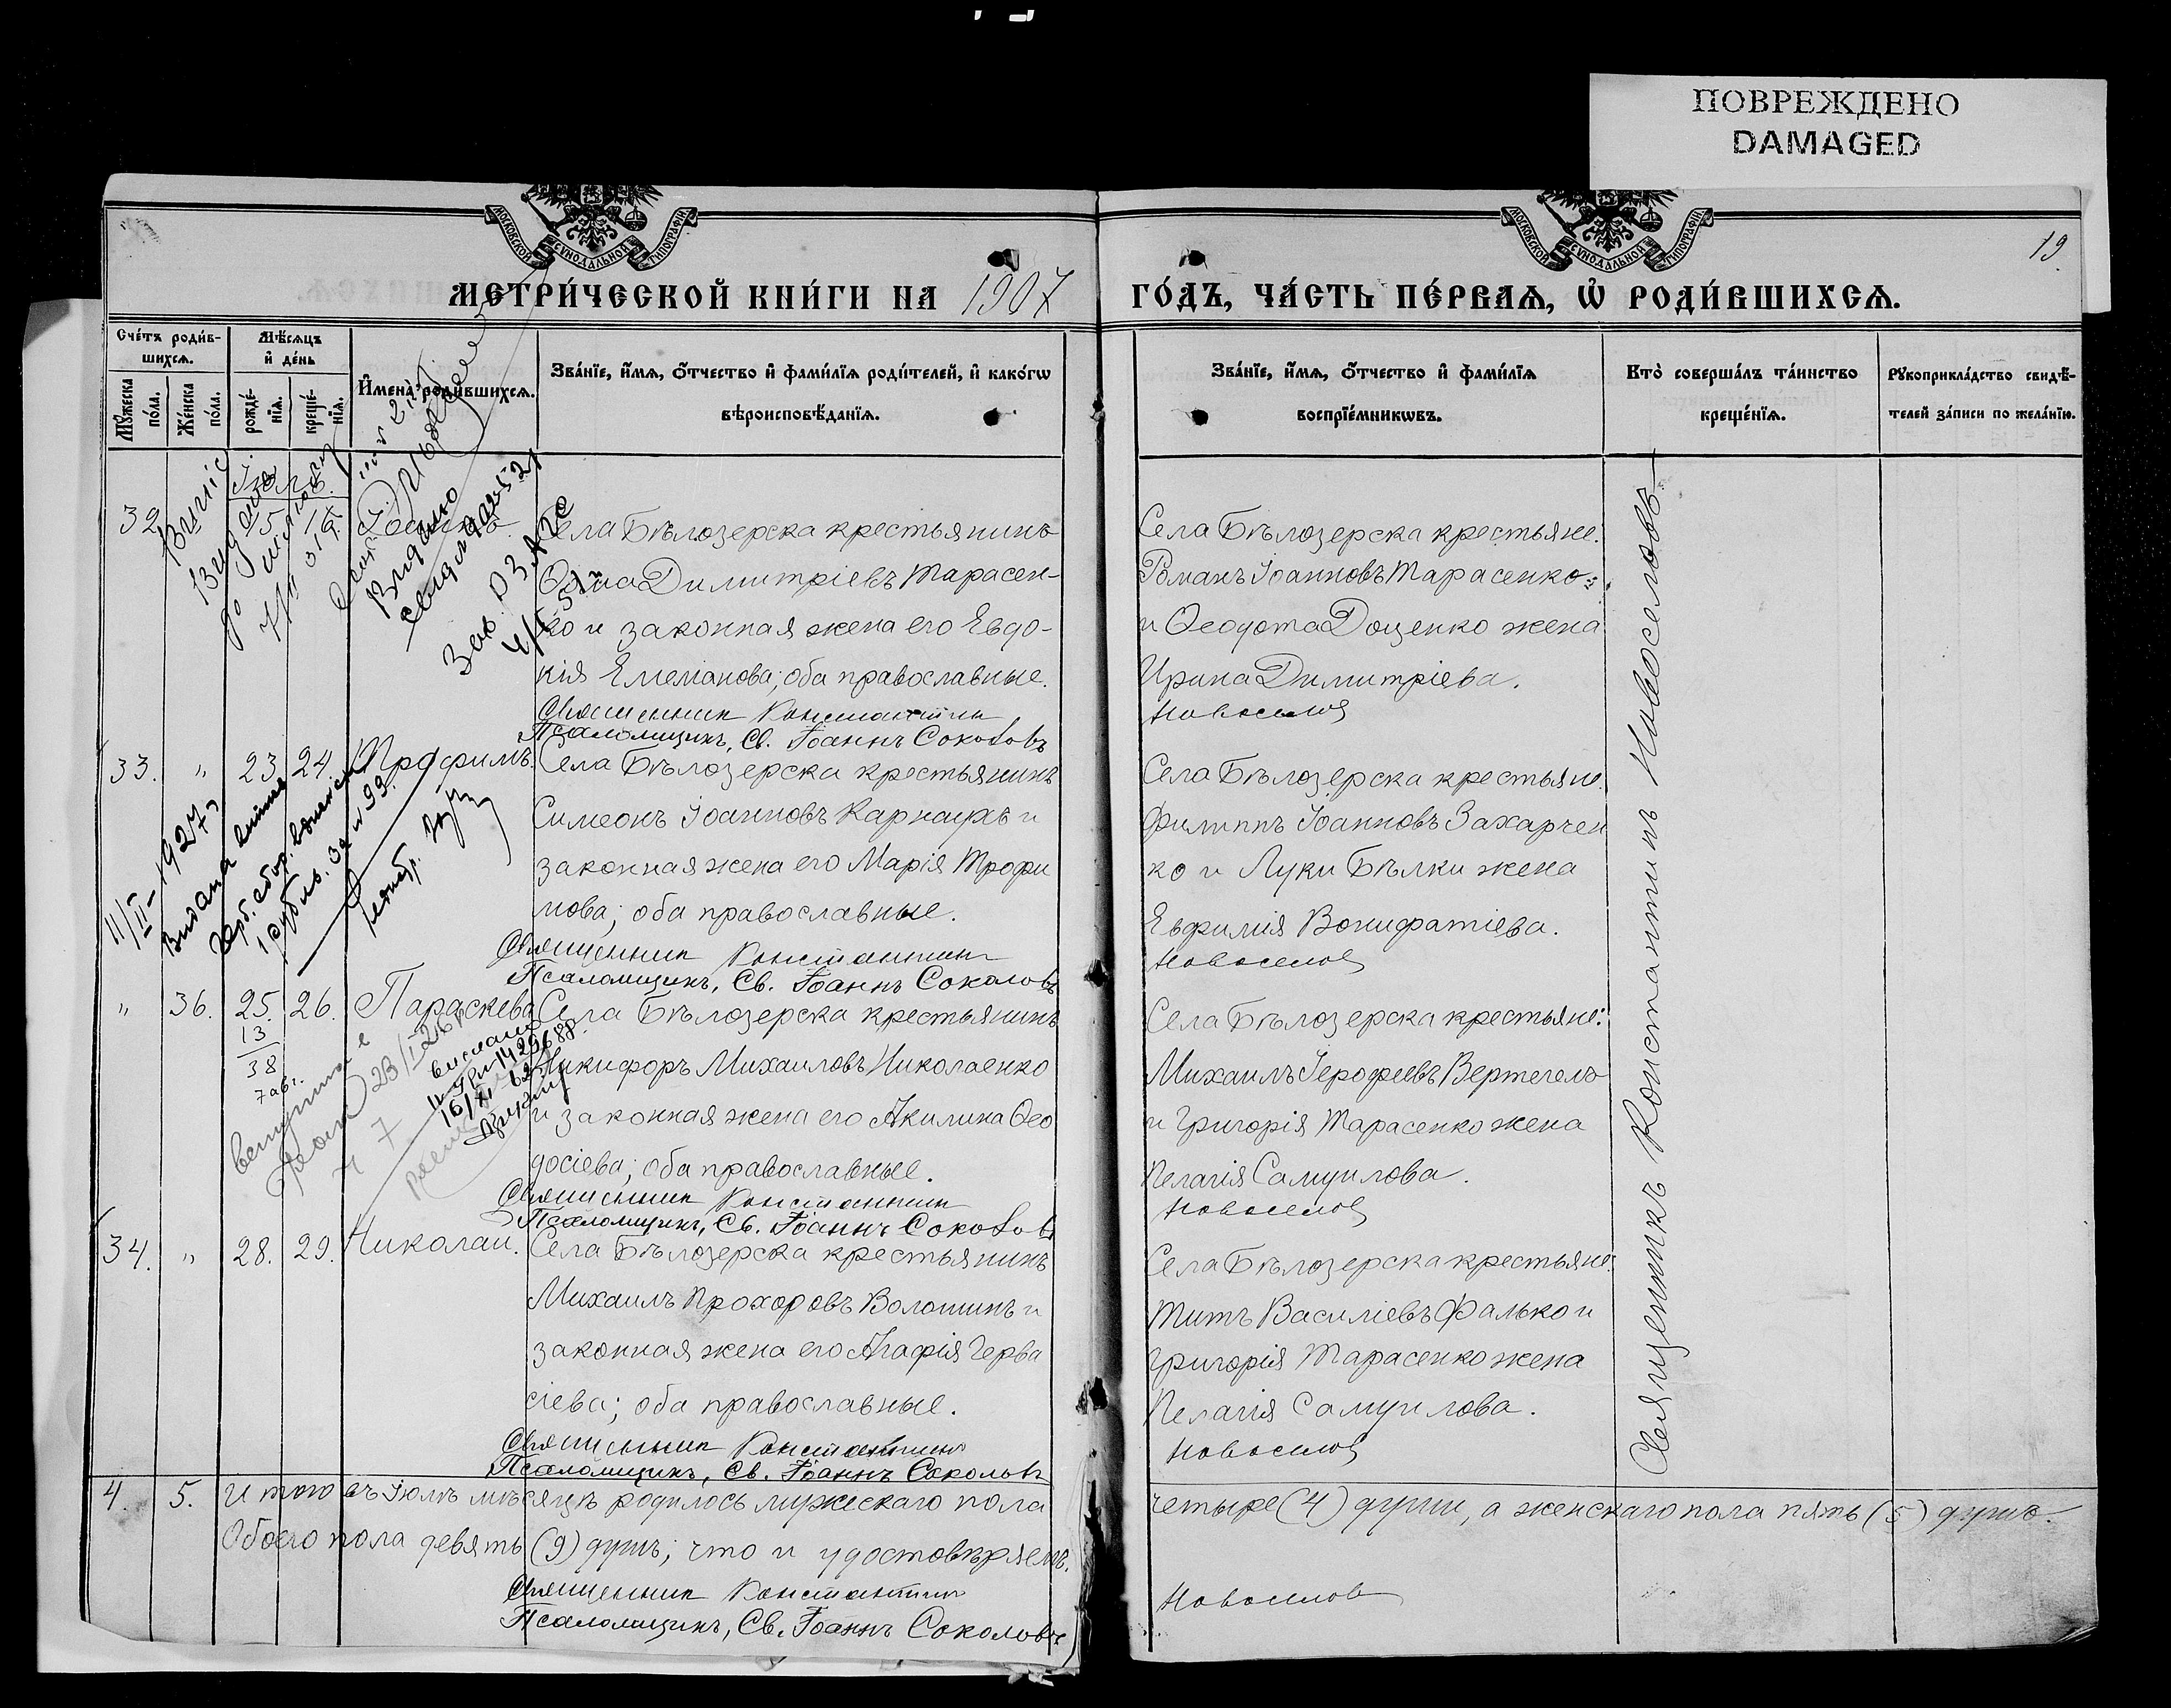 ПОВРЕЖДЕНО
DAMAGED
МОСКОВСКОЙ СѴНОДАЛЬНОЙ ТИПОГРАФІИ
МОСКОВСКОЙ СѴНОДАЛЬНОЙ ТИПОГРАФІИ
19.
МЕТРИ́ЧЕСКОЙ КНИ́ГИ НА 1907 ГО́ДЪ, ЧА́СТЬ ПЕ́РВАѦ, Ѡ҆ РОДИ́ВШИХСѦ.
Сче́тъ роди́в-
шихсѧ.
Мꙋ́жеска по́ла.
Же́нска по́ла.
Мѣ́сѧцъ
и҆ де́нь
рожде́-
нїѧ.
креще́-
нїѧ.
И҆мена̀ роди́вшихсѧ.
Зва́нїе, и҆́мѧ, ѻ҆́тчество и҆ фами́лїѧ роди́телей, и҆ како́гѡ
вѣроисповѣ́данїѧ.
Зва́нїе, и҆́мѧ, ѻ҆́тчество и҆ фами́лїѧ
воспрїе́мникѡвъ.
Кто̀ соверша́лъ та́инство
креще́нїѧ.
Рꙋкоприкла́дство свидѣ́-
телей за́писи по жела́нїю.
Іюль.
32 15 16
Села Бѣлозерска крестьянинъ
Димитріевъ Тарасен-
ко и законная жена его Евдо-
кія Емеліанова; оба православные.
Священник Константин
Псаломщикъ, Св. Іоаннъ Соколовъ
Села Бѣлозерска крестьяне:
Романъ Іоанновъ Тарасенко
и Ѳеодота Доценко жена
Ирина Димитріева.
Новоселов
33. " 23 24. Трофимъ.
Села Бѣлозерска крестьянинъ
Симеонъ Іоанновъ Карнаухъ и
законная жена его Марія Трофи
мова; оба православные.
Священник Константин
Псаломщикъ, Св. Іоаннъ Соколовъ
Села Бѣлозерска крестьяне:
Филиппъ Іоанновъ Захарчен
ко и Луки Бѣлки жена
Евфимія Вонифатіева.
Новоселов
11/II-1927
" 36. 25. 26. Параскева
13
38
Села Бѣлозерска крестьянинъ
Никифоръ Михаиловъ Николаенко
и законная жена его Акилина Ѳео
досіева; оба православные.
Священник Константин
Псаломщикъ, Св. Іоаннъ Соколовъ
Села Бѣлозерска крестьяне:
Михаилъ Іерофеевъ Вертегелъ
и Григорія Тарасенко жена
Пелагія Самуилова.
Новоселов
34. " 28. 29. Николай.
Села Бѣлозерска крестьянинъ
Михаилъ Прохоровъ Волошинъ и
законная жена его Агафія Герва
сіева; оба православные.
Священник Константин
Псаломщикъ, Св. Іоаннъ Соколовъ
Села Бѣлозерска крестьяне:
Титъ Василіевъ Фалько и
Григорія Тарасенко жена
Пелагія Самуилова.
Новоселов
Священникъ Константинъ Новоселовъ
4. 5. Итого въ Іюлѣ мѣсяцѣ родилось мужескаго пола четыре (4) души, а женскаго пола пять (5) душъ.
Обоего пола девять (9) душъ; что и удостовѣряемъ.
Священник Константин Новоселов
Псаломщикъ, Св. Іоаннъ Соколовъ